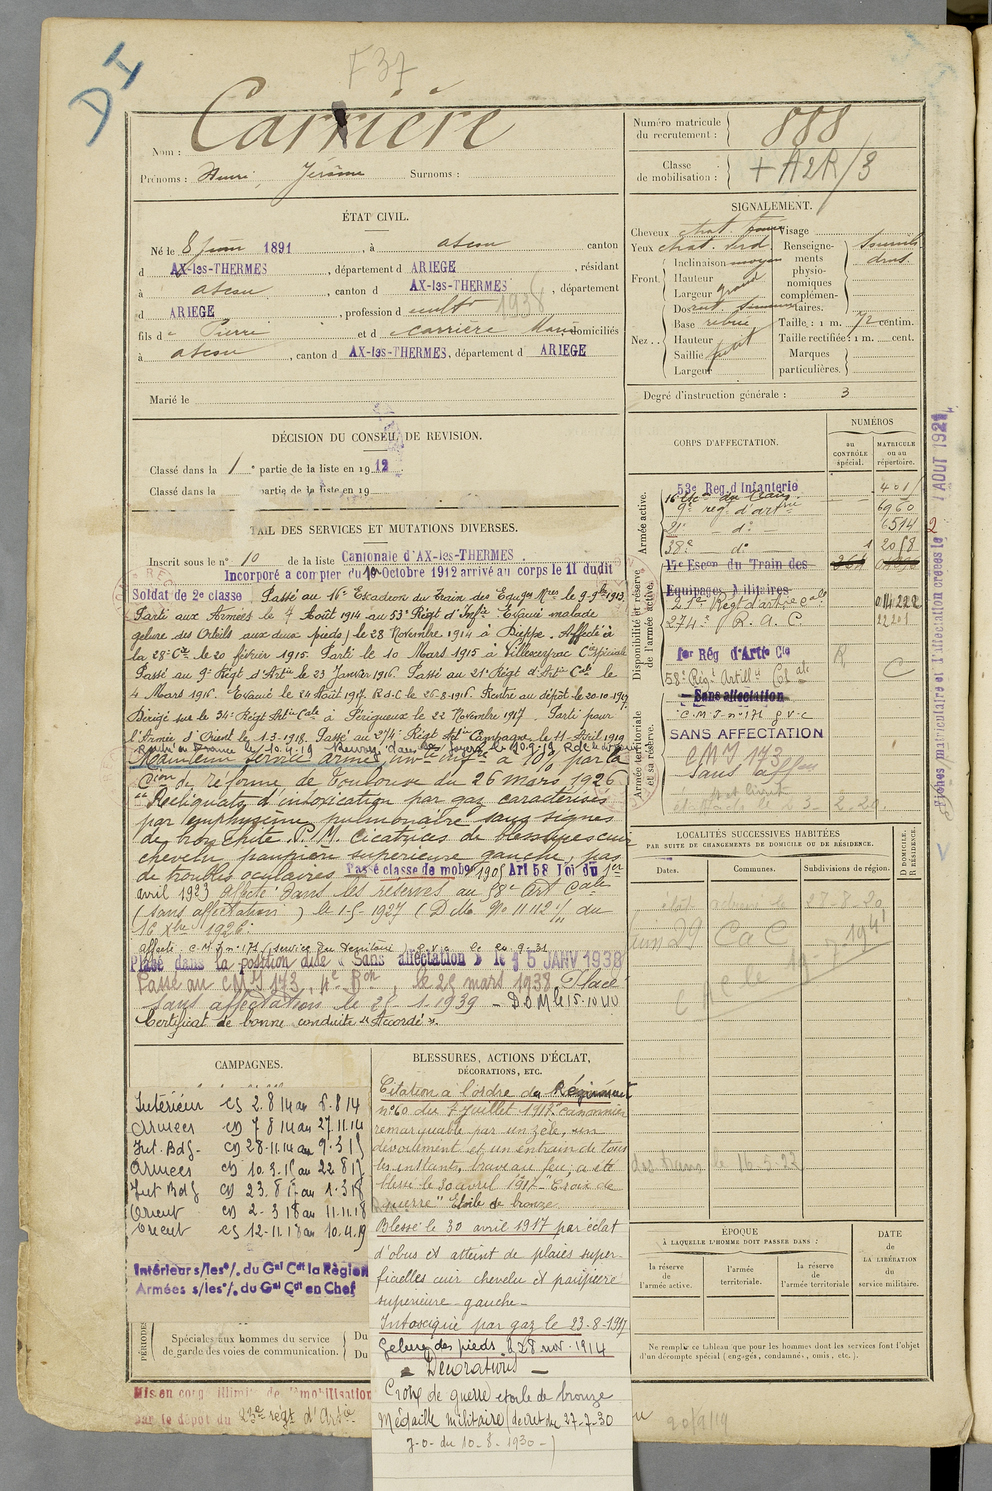 DI
F 37
Nom : Carrière
Prénoms : Henri, Jérôme Surnoms :
Numéro matricule du recrutement : 888
Classe de mobilisation : + A2R/3
ÉTAT CIVIL.
Né le 8 juin 1891, à ascou canton
d AX-les-THERMES, département d ARIEGE, résidant
à ascou, canton d AX-les-THERMES, département
d ARIEGE, profession d cultr 1938
fils de Pierre et de Carrière Marie domiciliés
à ascou, canton d AX-les-THERMES, département d ARIEGE
Marié le
SIGNALEMENT.
Cheveux chat. foncé Visage
Yeux chat. Renseigne-
ments
physio-
nomiques
complémen-
taires.
Front. Inclinaison moyen
Hauteur
Largeur grand
Nez. Dos
Base
Hauteur
Saillie petit
Largeur
Taille : 1 m. 72 centim.
Taille rectifiée : 1 m. cent.
Marques
particulières.
Degré d'instruction générale : 3
DÉCISION DU CONSEIL DE REVISION.
Classé dans la 1e partie de la liste en 1912
Classé dans la partie de la liste en 19
TAIL DES SERVICES ET MUTATIONS DIVERSES.
Inscrit sous le n° 10 de la liste Cantonale d'AX-les-THERMES.
Incorporé à compter du 10 Octobre 1912 arrivé au corps le 11 dudit
Soldat de 2e classe. Passé au 16e Escadron du Train des Equges Mres le 9-9bre 1913.
Parti aux Armées le 7 Août 1914 au 53e Régt d'Infie Evacué malade
gelure des Orteils aux deux pieds) le 28 Novembre 1914 à Dieppe. Affecté à
la 28e Cie le 20 février 1915. Parti le 10 Mars 1915 à
Passé au 9e Régt d'Artie le 23 Janvier 1916. Passé au 21e Régt d'Artie Cale le
4 Mars 1916. Evacué le 24 Août 1917. Rentré au dépôt le 20.10.1917
Dirigé sur le 34e Régt Artie Cale à Périgueux le 22 Novembre 1917. Parti pour
l'Armée d'Orient le 1.3.1918. Passé au 274e Régt Artie Campagne le 11 Avril 1919
Rentré en France le 10.4.19 Renvoyé dans ses foyers le 10.9.19
Maintenu service armé, invte infre à 10% par la
Cion de réforme de Toulouse du 26 mars 1926
"Reliquats d'intoxication par gaz caractérisés
par emphysème pulmonaire sans signes
de bronchite. P.M. Cicatrices de blessures cuir
chevelu, paupière supérieure gauche, pas
de troubles oculaires Passé classe de mobon 1905 Art 58 loi du 1er
avril 1923 affecté dans les réserves au 58e Art Cale
(sans affectation) le 1-5-1927 (D.M. No 11.112 du
16 Xbre 1926.
affecté C.M.I n° 171 (service du Territoire) G.V.C. le 20.9.31
Placé dans la position dite « Sans affectation » le 15 JANV 1938
Passé au C.M.I 173, le 25 mars 1938. Placé
sans affectation le 25 1.1939 - D D M le 15.10.40
Certificat de bonne conduite "Accordé".
CORPS D'AFFECTATION.
NUMÉROS
au CONTRÔLE spécial.
MATRICULE ou au répertoire.
Armée active.
53e Rég. d'Infanterie 401
16e Eon du Train.
9e rég. d'artrie 6960
21e do 6514
38e do 2058
Disponibilité et réserve de l'armée active.
17e Escon du Train des 364
Equipages Militaires
21e Régt d'artie cale 014222
274e R. A. C. 22201
1er Rég d'Artie Cle R
58e Régt Artillie Colale C
Sans affectation
Armée territoriale et sa réserve.
C.M.I n° 171 G.V.C
SANS AFFECTATION
CMI 173
sans affon
Fiches matriculaire et d'affectation créées le 7 AOUT 1921
LOCALITÉS SUCCESSIVES HABITÉES
PAR SUITE DE CHANGEMENTS DE DOMICILE OU DE RÉSIDENCE.
Dates. Communes. Subdivisions de région. D DOMICILE. R RÉSIDENCE.
28-8-20
juin 29 CaC
19-7-1941
le 16-5-22
CAMPAGNES.
Intérieur CS 2.8.14 au 6.8.14
Armées CD 7 8 14 au 27.11.14
Int. Bdg. CD 28-11.14 au 9-3 15
Armées CD 10.3.15 au 22 8 17
Int Bdg CD 23.8 17 au 1.3 18
Orient CD 2-3 18 au 11.11.18
Orient CS 12-11.18 au 10.4.19
Intérieur s/les o/. du Gal Cdt la Région
Armées s/les o/. du Gal Cdt en Chef
PÉRIODES
Spéciales aux hommes du service
de garde des voies de communication. Du
Du
Mis en congé illimité de démobilisation
par le dépôt du 23e régt d'Artie
BLESSURES, ACTIONS D'ÉCLAT,
DÉCORATIONS, ETC.
Citation à l'ordre du Régiment
n° 60 du 7 juillet 1917. canonnier
remarquable par un zèle, un
dévouement et un entrain de tous
les instants, brave au feu, a été
blessé le 30 avril 1917- "Croix de
guerre" Etoile de bronze
Blessé le 30 avril 1917 par éclat
d'obus et atteint de plaies super-
ficielles cuir chevelu et paupière
supérieure gauche-
Intoxiqué par gaz le 23-8-1917
Gelure des pieds le 28 nov. 1914
- Décorations -
Croix de guerre étoile de bronze
Médaille militaire (décret du 27-7-30
J.O. du 10-8-1930-)
ÉPOQUE
À LAQUELLE L'HOMME DOIT PASSER DANS :
la réserve de l'armée active.
l'armée territoriale.
la réserve de l'armée territoriale
DATE DE LA LIBÉRATION du service militaire.
Ne remplir ce tableau que pour les hommes dont les services font l'objet
d'un décompte spécial (engagés, condamnés, omis, etc.).